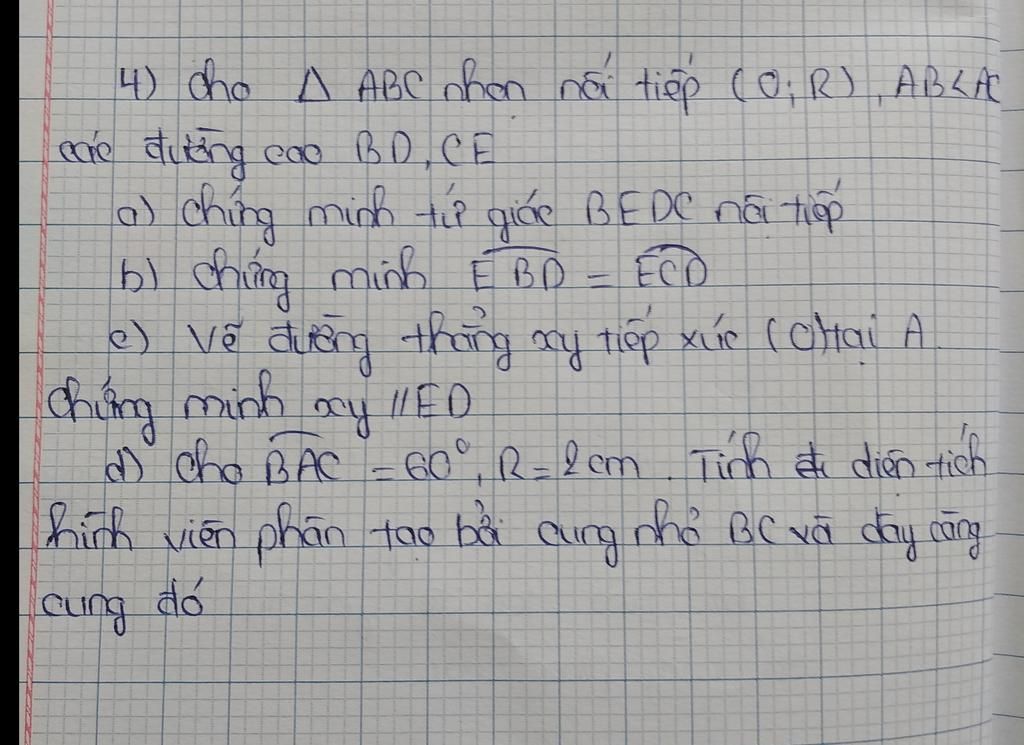 4) Cho Δ ABC nhọn nội tiếp (O; R), AB<AC
các đường cao BD, CE
a) Chứng minh tứ giác BEDC nội tiếp
b) Chứng minh EBD = ECD
c) Vẽ đường thẳng xy tiếp xúc (O) tại A.
Chứng minh xy // ED
d) Cho BAC = 60°, R = 2cm. Tính diện tích
hình viên phân tạo bởi cung nhỏ BC và dây căng
cung đó